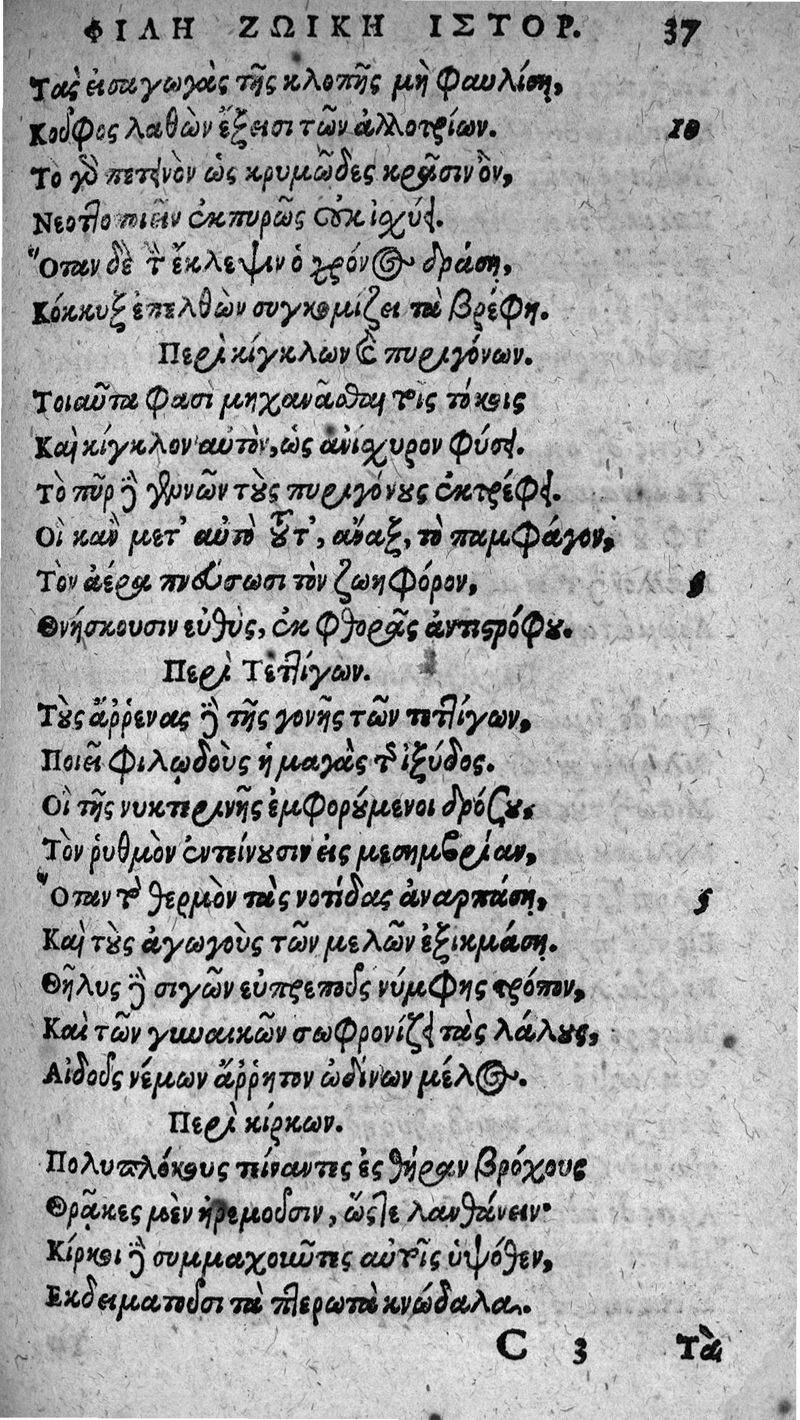 ΦΙΛΗ ΖΩΙΚΗ ΙΣΤΟΡ. 37
Τὰς εἰσαγωγὰς τῆς κλοπῆς μὴ φαυλίσῃ,
Κοῦφος λαθὼν ἔξεισι τῶν ἀλλοτρίων. 10
Τὸ γὸ πετεινὸν ὡς κρυμῶδες κρᾶσιν ὂν,
Νεοττοποιεῖν ἐκπυρῶς οὐκ ἰσχύει.
Ὅταν δὲ τ̀ ἔκλεψιν ὁ χρόνος δράσῃ,
Κόκκυξ ἐπελθὼν συγκομίζει τὰ βρέφη.
Περὶ κίγκλων ϗ πυριγόνων.
Τοιαῦτα φασὶ μηχανᾶσθαι τοῖς τόκοις
Καὶ κίγκλον αὐτὸν, ὡς ἀνίσχυρον φύσει.
Τὸ πῦρ ἢ γεννῶν τοὺς πυριγόνους ἐκτρέφει.
Οἳ κἂν μετ' αὐτὸ τοῦτ', ἄναξ, τὸ παμφάγον,
Τὸν ἀέρα πνεύσωσι τὸν ζωηφόρον, 5
Θνήσκουσιν εὐθὺς, ἐκ φθορᾶς ἀντιστρόφου.
Περὶ Τεττίγων.
Τοὺς ἄῤῥενας ἢ τῆς γονῆς τῶν τεττίγων,
Ποιεῖ φιλῳδοὺς ἡ μαγὰς τ̀ ἰξύδος.
Οἳ τῆς νυκτερινῆς ἐμφορούμενοι δρόσου,
Τὸν ῥυθμὸν ἐντείνουσιν εἰς μεσημβρίαν,
Ὅταν τὸ θερμὸν τὰς νοτίδας ἀναρπάσῃ, 5
Καὶ τοὺς ἀγωγοὺς τῶν μελῶν ἐξικμάσῃ.
Θῆλυς ἢ σιγῶν εὐπρεποῦς νύμφης τρόπον,
Καὶ τῶν γυναικῶν σωφρονίζει τὰς λάλους,
Αἰδοῦς νέμων ἄῤῥητον ὠδίνων μέλος.
Περὶ κίρκων.
Πολυπλόκους τείναντες ἐς θήραν βρόχους
Θρᾷκες μὲν ἠρεμοῦσιν, ὥστε λανθάνειν·
Κίρκοι ἢ συμμαχοῦντες αὐτοῖς ὑψόθεν,
Ἐκδειματοῦσι τὰ πτερωτὰ κνώδαλα.
C 3 Τὰ